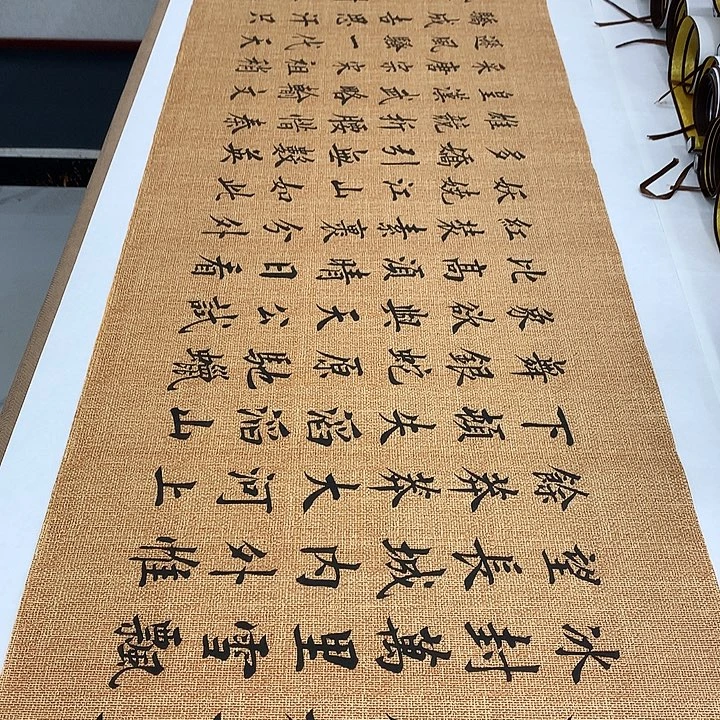 冰封萬里雪飄
望長城內外惟
餘莽莽大河上
下頓失滔滔山
舞銀蛇原馳蠟
象欲與天公試
比高須晴日看
紅裝素裹分外
妖嬈江山如此
多嬌引無數英
雄競折腰惜秦
皇漢武略輸文
采唐宗宋祖稍
遜風騷一代天
驕成吉思汗只